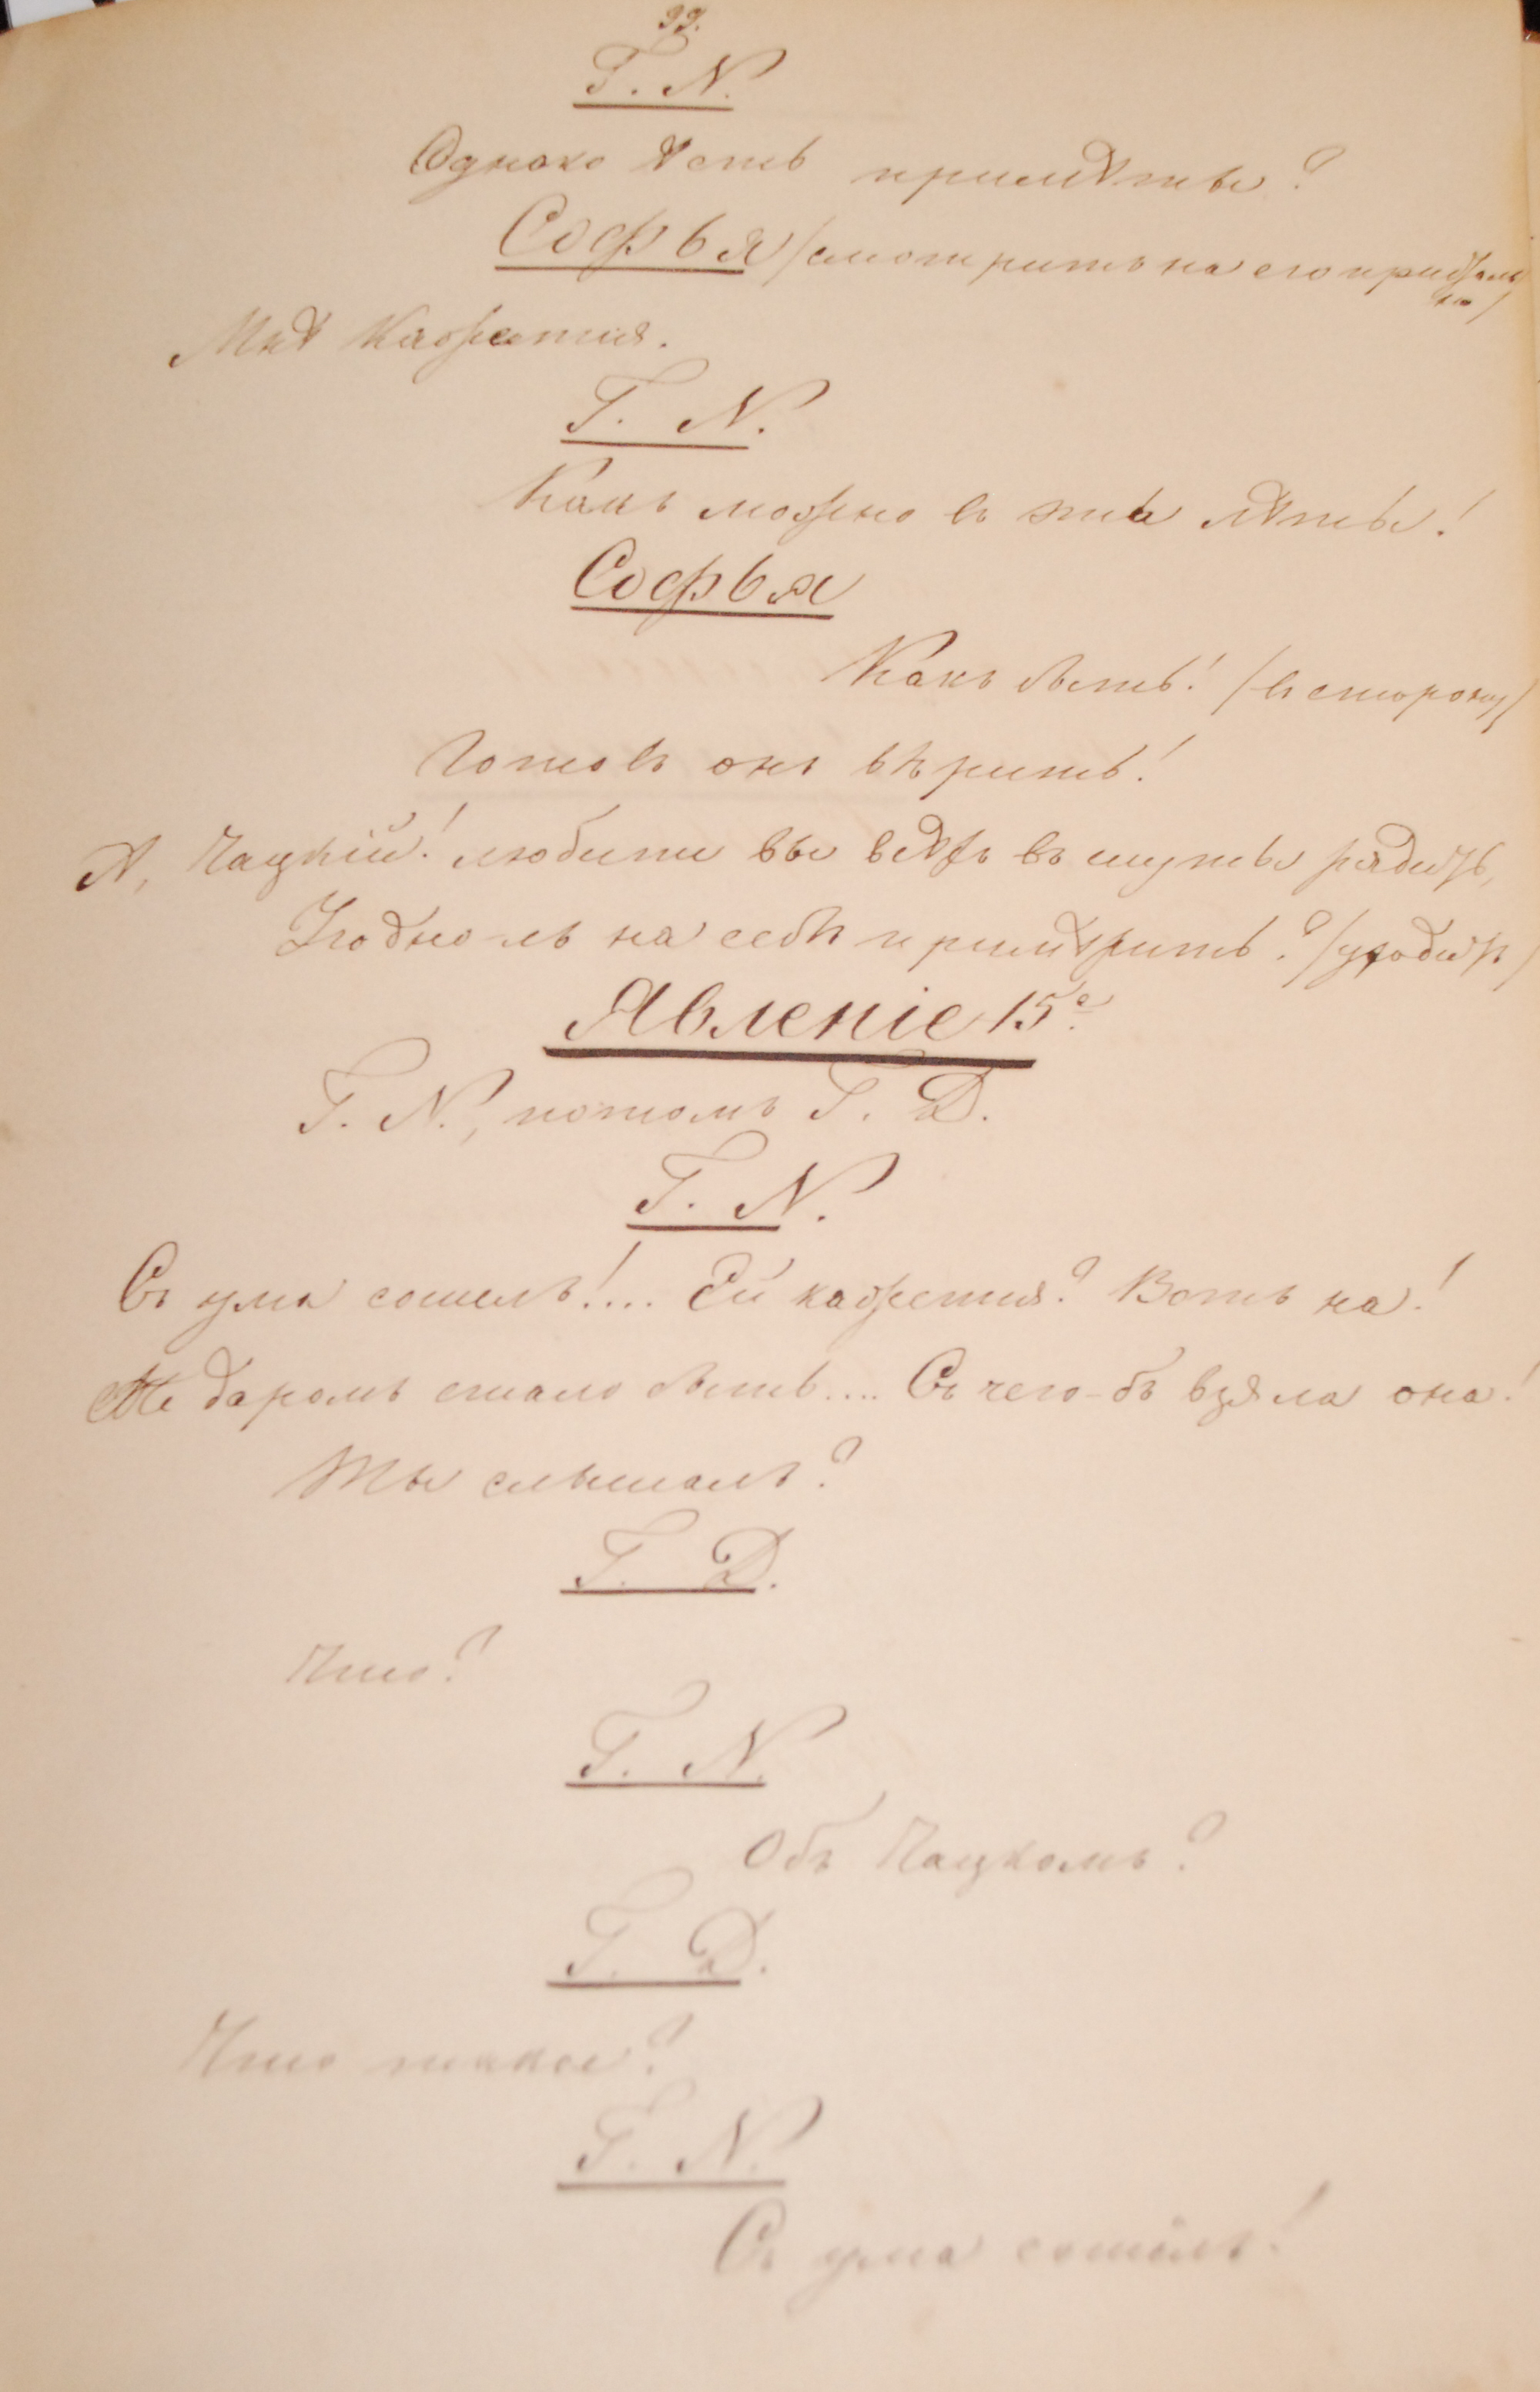 99.
Г. N.
Однако есть примѣты?
Софья /смотритъ на его пристально/
Мнѣ кажется.
Г. N.
Какъ можно въ эти лѣты!
Софья
Какъ быть! /въ сторону/
Готовъ онъ вѣрить!
А, Чацкій! любите вы всѣхъ въ шуты рядить,
Угодно-ль на себѣ примѣрить? /уходитъ/
Явленіе 15е.
Г. N., потомъ Г. D.
Г. N.
Съ ума сошелъ!.... Ей кажется? Вотъ на!
Не даромъ стало быть.... Съ чего-бъ взяла она!
Ты слышалъ?
Г. D.
Что?
Г. N.
Объ Чацкомъ?
Г. D.
Что такое?
Г. N.
Съ ума сошёлъ!